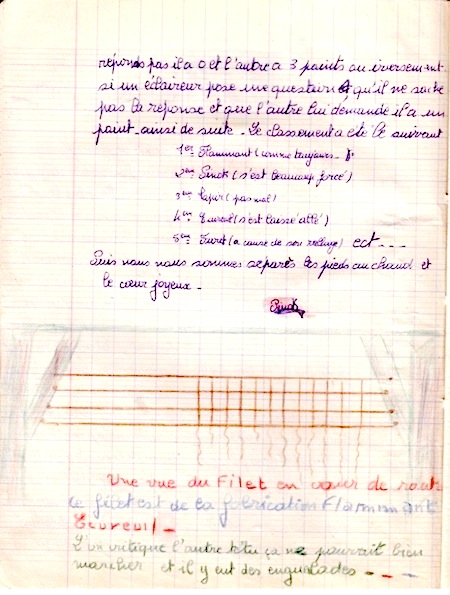 réponds pas il a 0 et l'autre a 3 points ou inversement
si un éclaireur pose une question et qu'il ne sache
pas la réponse et que l'autre lui demande il a un
point ainsi de suite - Le classement a été le suivant
1er Flammant (comme toujours
2em Sinok (s'est beaucoup forcé)
3em Tapir (pas mal)
4em Ecureuil (s'est laissé allé)
5em Furet (a cause de son) ect---
Puis nous nous sommes séparés les pieds au chaud et
le cœur joyeux -
Sinok
Une vue du Filet en cour de route
ce filet est de la fabrication Flammant
Ecureuil -
L'un critique l'autre ça ne pourrait bien
marcher et il y eut des engueulades - - -